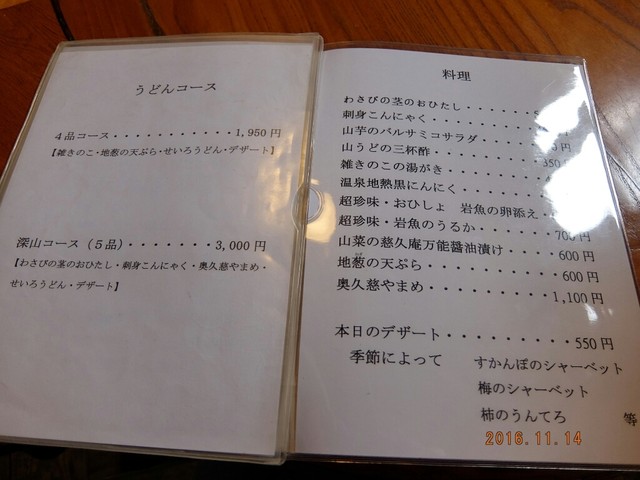 うどんコース
４品コース・・・・・・・・・・・1,950 円
【雑きのこ・地葱の天ぷら・せいろうどん・デザート】
深山コース（５品）・・・・・・・3,000 円
【わさびの茎のおひたし・刺身こんにゃく・奥久慈やまめ・
せいろうどん・デザート】
料理
わさびの茎のおひたし・・・・・・
刺身こんにゃく・・・・・・・・
山芋のバルサミコサラダ・・・・・
山うどの三杯酢・・・・・・・・
雑きのこの湯がき・・・・・・・350
温泉地熱黒にんにく・・・・・・
超珍味・おひしょ　岩魚の卵添え・・
超珍味・岩魚のうるか・・・・・700円
山菜の慈久庵万能醤油漬け・・・・600 円
地葱の天ぷら・・・・・・・・・600 円
奥久慈やまめ・・・・・・・・・1,100 円
本日のデザート・・・・・・・・・550 円
季節によって　すかんぽのシャーベット
梅のシャーベット
柿のうんてろ　等
2016.11.14